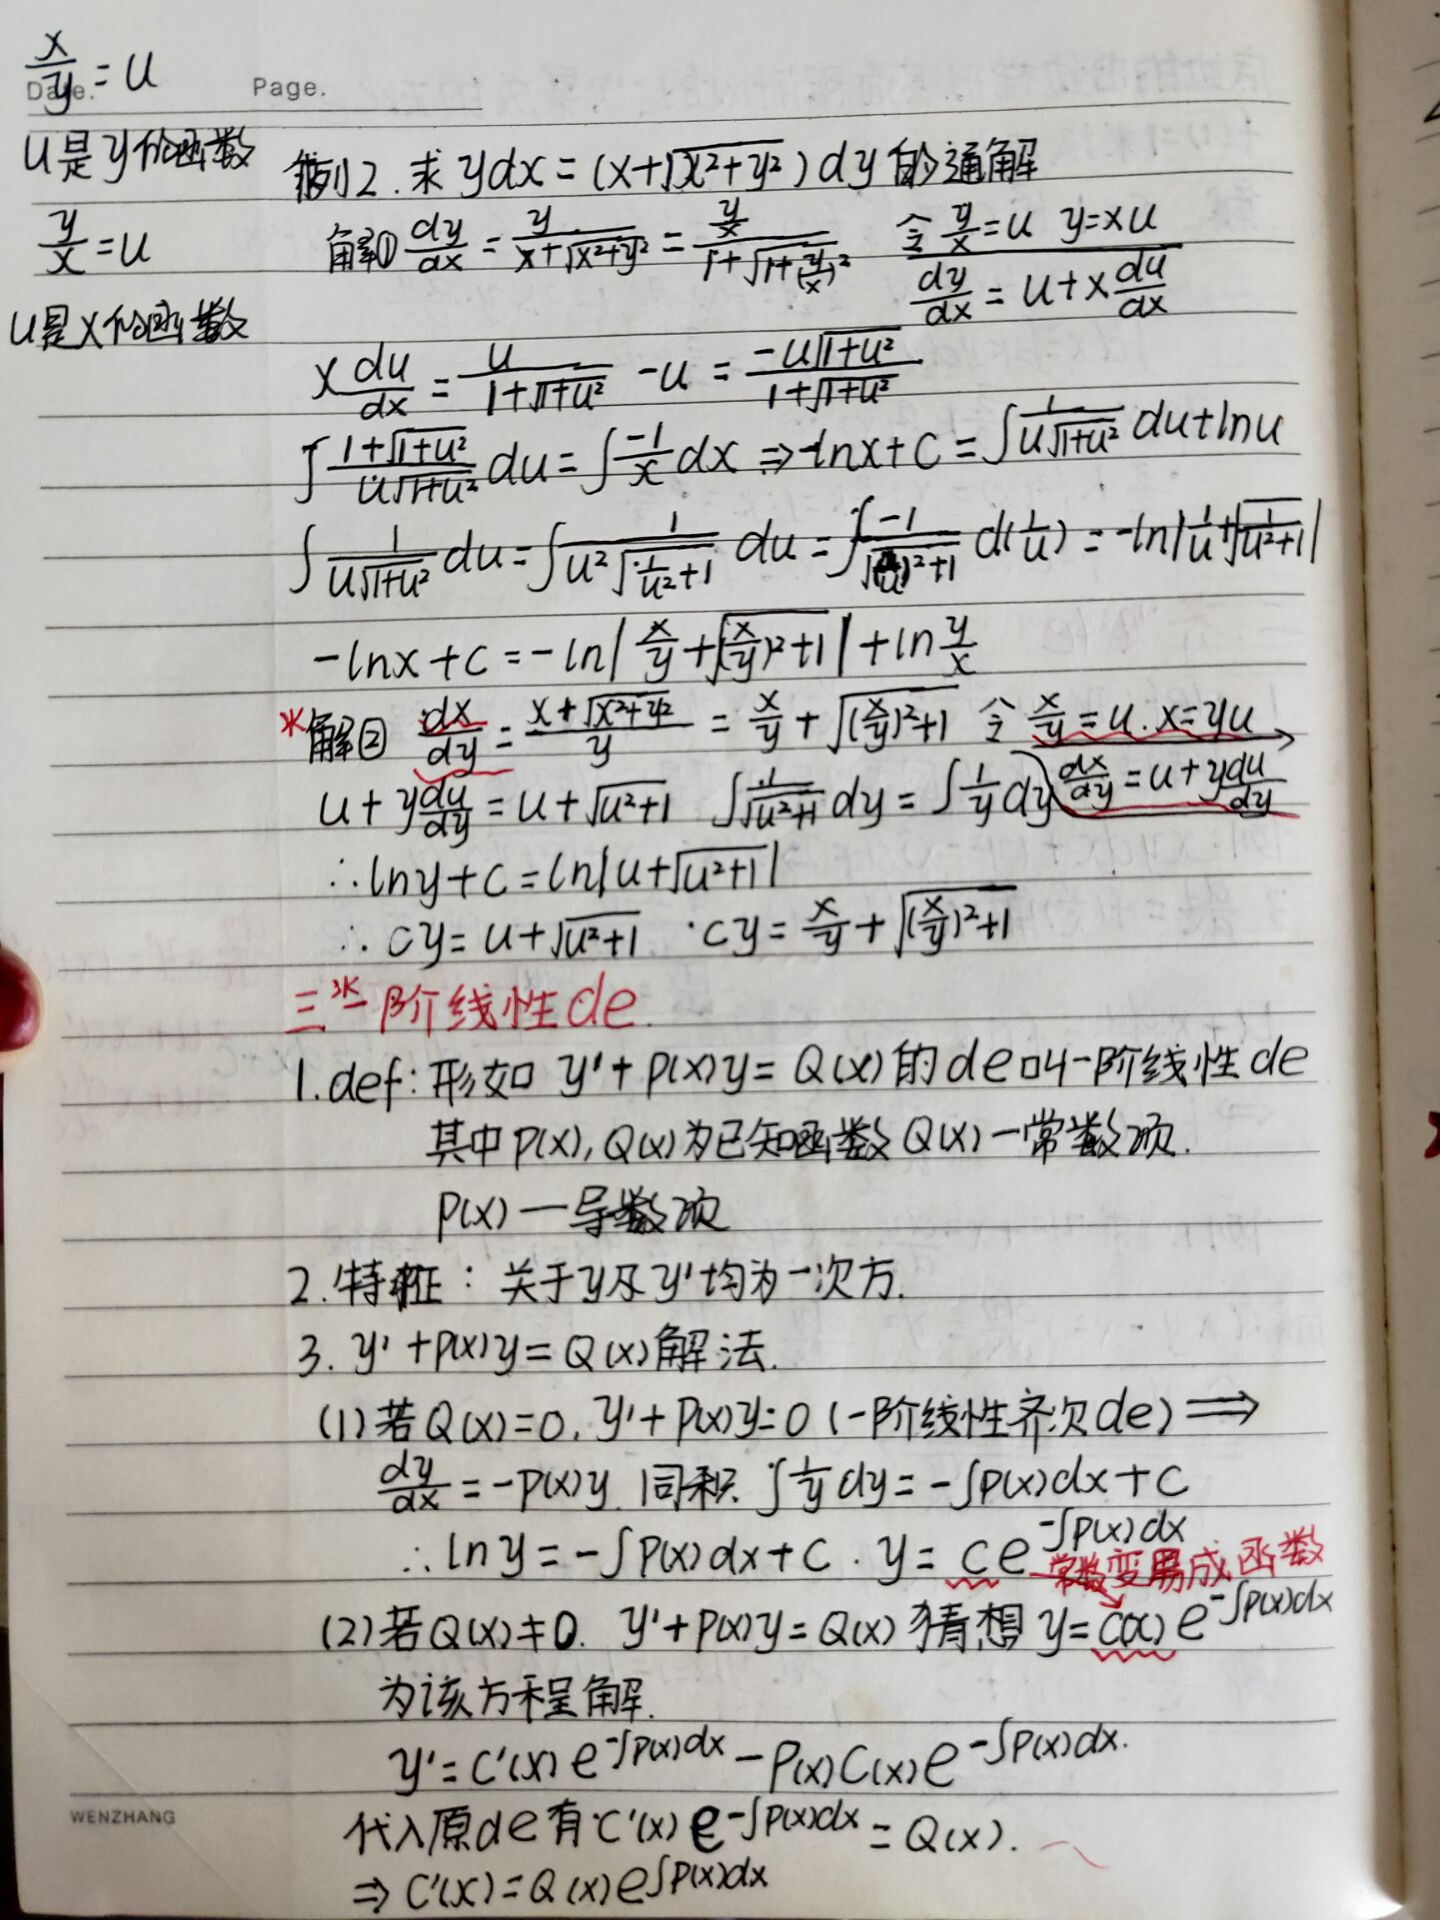 x/y = u
Date. Page.
u是y的函数
y/x = u
u是x的函数
例2. 求 ydx = (x+√(x²+y²))dy 的通解
解① dy/dx = y/(x+√(x²+y²)) = (y/x)/(1+√(1+(y/x)²)) 令 y/x = u y=xu
dy/dx = u+x du/dx
x du/dx = u/(1+√(1+u²)) - u = -u√(1+u²)/(1+√(1+u²))
∫ (1+√(1+u²))/(u√(1+u²)) du = ∫ -1/x dx ⇒ -lnx+C = ∫ 1/(u√(1+u²)) du+lnu
∫ 1/(u√(1+u²)) du = ∫ 1/(u²√(1/u²+1)) du = ∫ -1/√((1/u)²+1) d(1/u) = -ln|1/u+√(1/u²+1)|
-lnx+C = -ln|x/y+√((x/y)²+1)|+ln y/x
*解② dx/dy = (x+√(x²+y²))/y = x/y+√((x/y)²+1) 令 x/y = u. x=yu
u+y du/dy = u+√(u²+1) ∫ 1/√(u²+1) dy = ∫ 1/y dy dx/dy = u+y du/dy
∴ lny+C = ln|u+√(u²+1)|
∴ cy = u+√(u²+1) · cy = x/y+√((x/y)²+1)
三※一阶线性de.
1.def: 形如 y'+p(x)y= Q(x)的de叫一阶线性de
其中p(x), Q(x)为已知函数Q(x)—常数项.
p(x)—导数项
2.特征: 关于y及y'均为一次方.
3. y'+p(x)y=Q(x)解法.
(1)若Q(x)=0, y'+p(x)y=0 (一阶线性齐次de) ⟹
dy/dx = -p(x)y. 同积. ∫ 1/y dy = -∫p(x)dx+C
∴ ln y = -∫p(x)dx+C . y = ce^(-∫p(x)dx)
常数变易成函数
(2)若Q(x)≠0. y'+p(x)y=Q(x) 猜想 y=c(x)e^(-∫p(x)dx)
为该方程解.
y'=C'(x)e^(-∫p(x)dx) -p(x)C(x)e^(-∫p(x)dx).
代入原de有·C'(x)e^(-∫p(x)dx) = Q(x).
⇒ C'(x)=Q(x)e^(∫p(x)dx)
WENZHANG